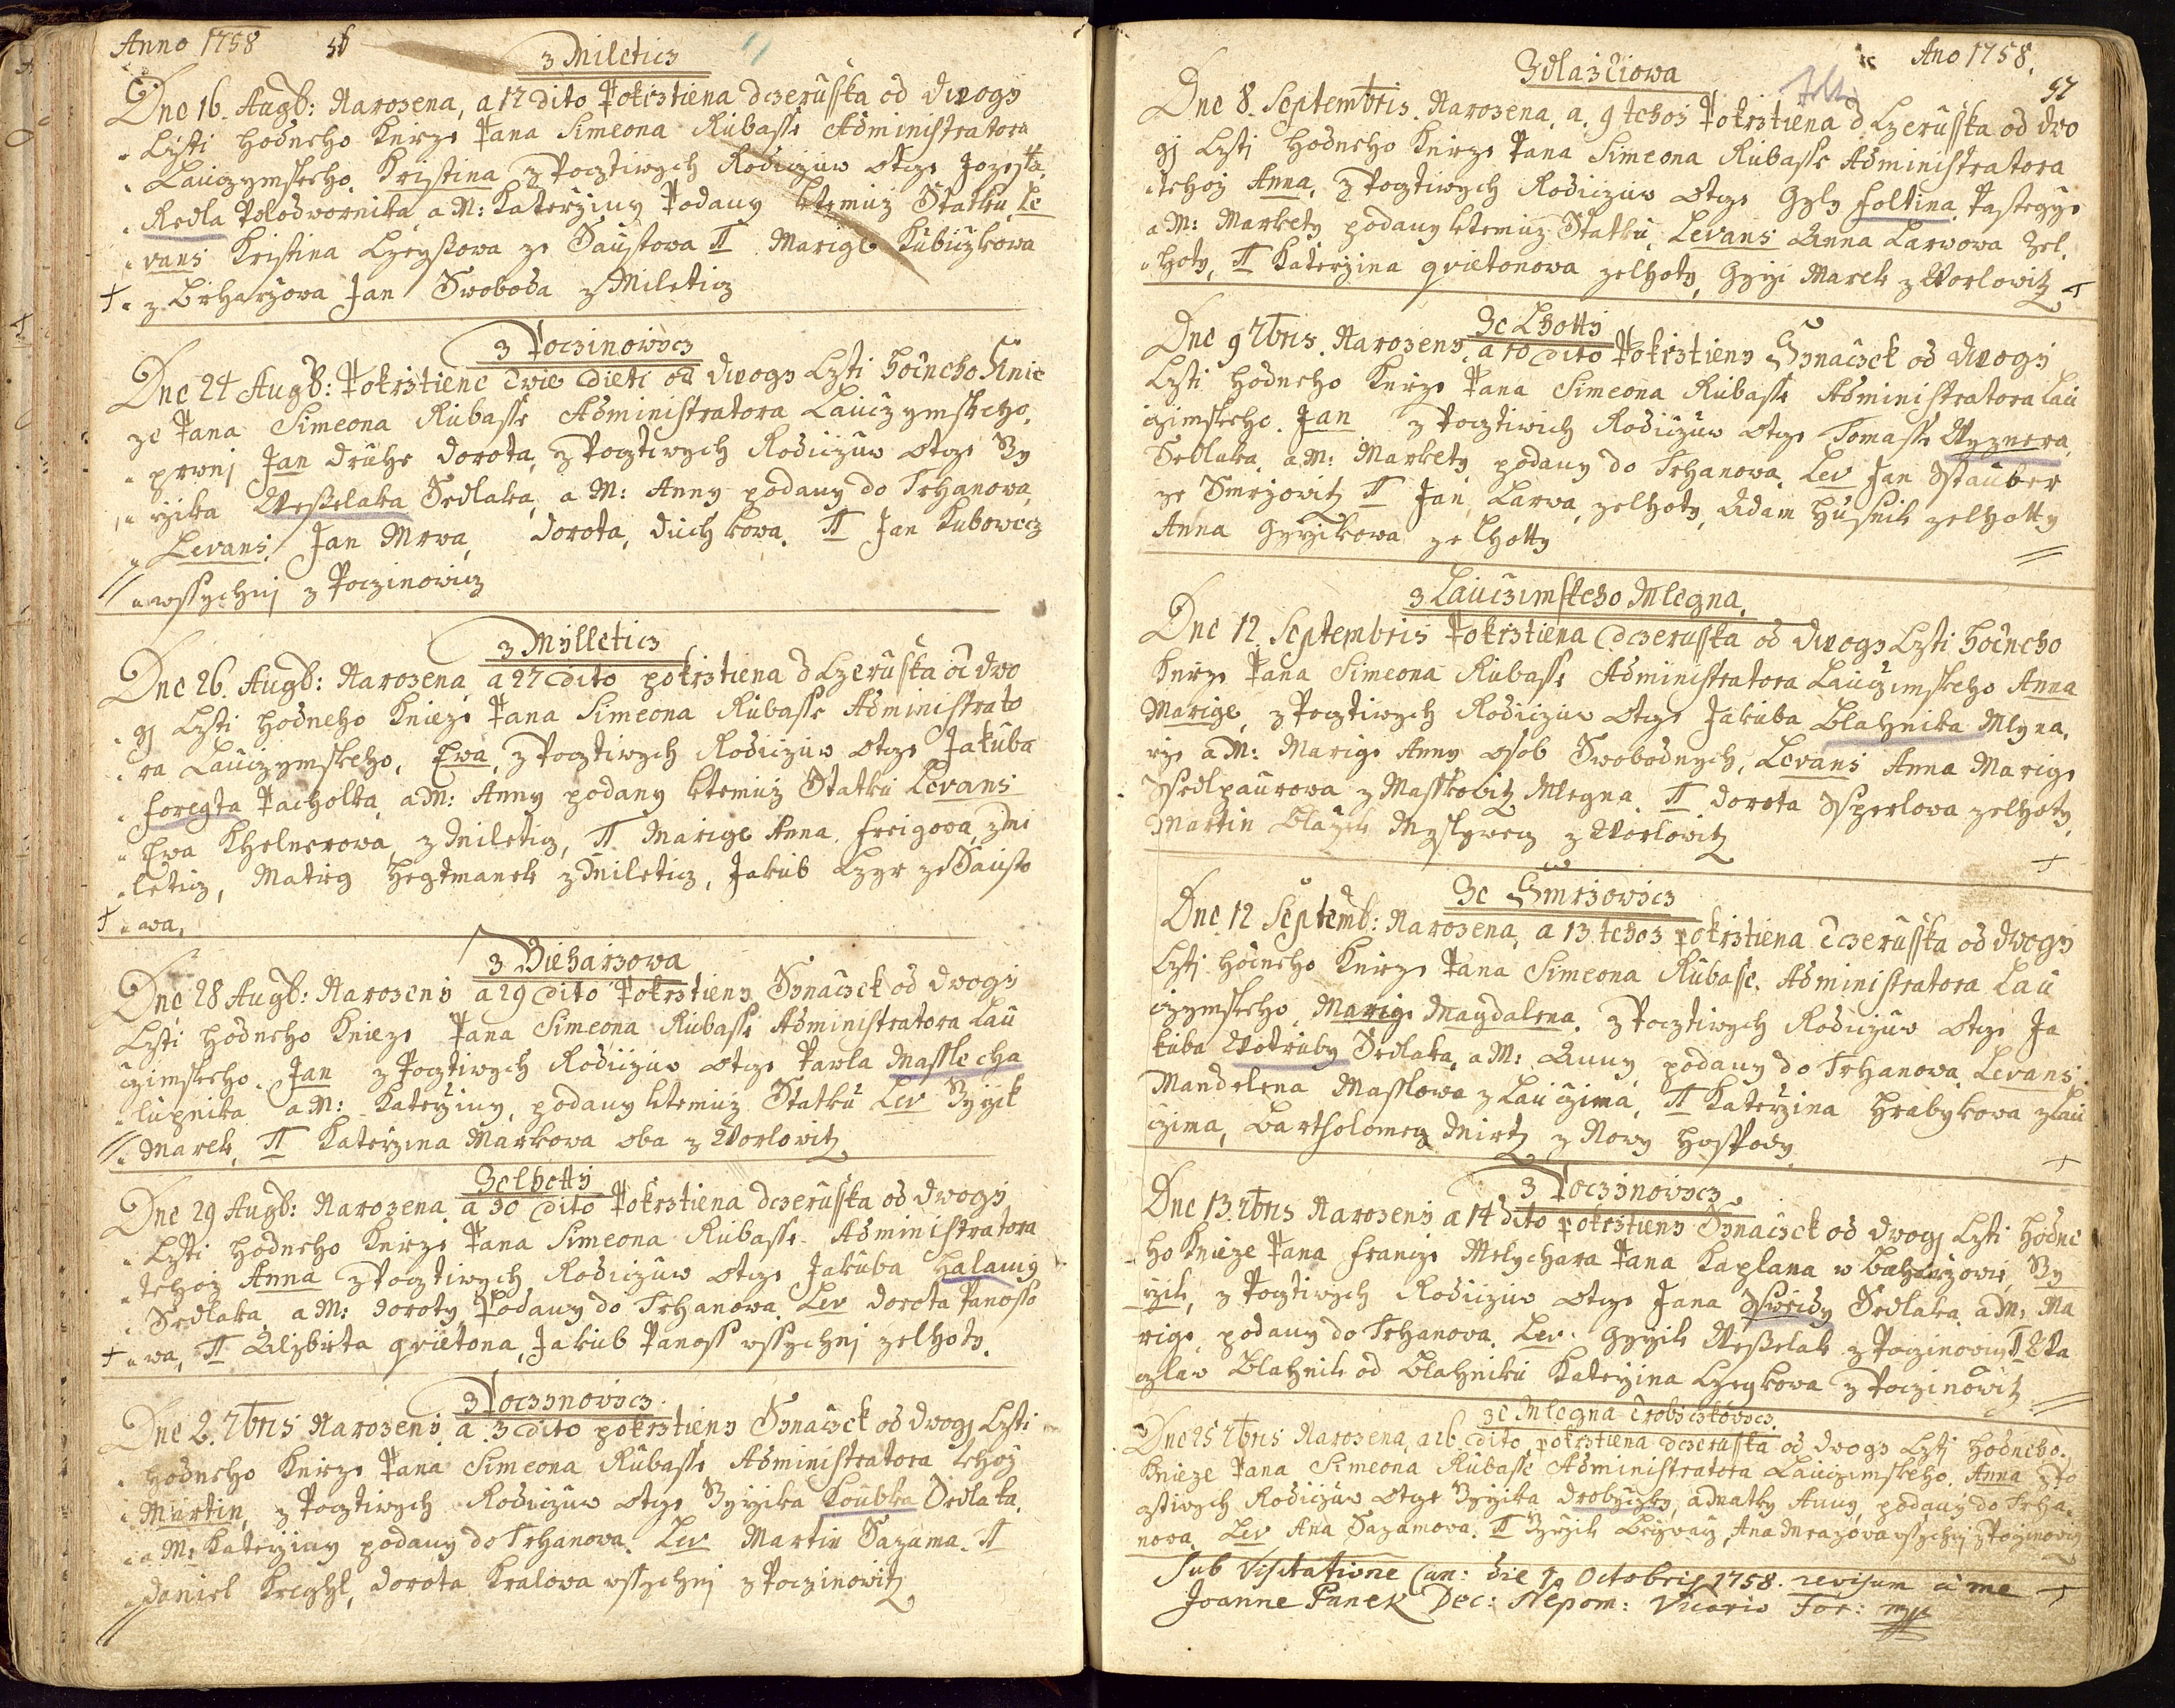 Anno 1758 56
z Mileticz
Dne 16. Augb: Narozena, a 17 dito Pokrztiena dczerusska od dwogy
Czti hodneho Knieze Pana Simeona Rubasse Administratora
Lauczymskeho. Kristina z Pocztiwych Rodiczuw Otcze Jozeffa
Redla Polodwornika a M: Katerziny Podany ktemuz Statku, Le
vans Kristina Czeyssowa ze Saustowa π Marige Kubiczkowa
z Birharzowa Jan Swoboda z Mileticz
z Poczinowycz
Dne 24 Augb: Pokrztiene dwie dieti od dwogy Czti hodneho Knie
ze Pana Simeona Rubasse Administratora Lauczymskeho.
prwnj Jan druhe dorota, z Pocztiwych Rodiczuw Otcze Rzy
rzika Wesselaka Sedlaka, a M: Anny podany do Trhanowa,
Levans Jan Mrwa, dorota, duchkowa. π Jan Kubowecz
wssychnj z Poczinowicz
z Mylleticz
Dne 26. Augb: Narozena a 27 dito pokrztiena dCzerusska od dwo
gj Czti hodneho Knieze Pana Simeona Rubasse Administrato
ra Lauczymskeho, Ewa, z Pocztiwych Rodiczuw Otcze Jakuba
foregta Pacholka, a M: Anny podany ktemuz Statku Levans
Ewa Khelnerowa z Mileticz, π Marige Anna freigowa, z Mi
leticz, Matieg Hegtmanek z Mileticz, Jakub Czyr ze Sausto
wa,
z Bieharzowa
Dne 28 Augb: Narozeny a 29 dito Pokrztieny Synaczek od dwogy
Czti hodneho Knieze Pana Simeona Rubasse Administratora Lau
czimskeho. Jan z Pocztiwych Rodiczuw Otcze Pawla Masslecha
lupnika a M: Katerziny, podany ktemuz Statku Lev Rzyrzik
Marek, π Katerzina Markowa oba z Worlowitz
Zelhotty
Dne 29 Augb: Narozena a 30 dito Pokrztiena dczerusska od dwogy
Czti hodneho Knieze Pana Simeona Rubasse Administratora
tehoz Anna z Pocztiwych Rodiczuw Otcze Jakuba Halamy
Sedlaka a M: doroty, Podany do Trhanowa Lev dorota Panosso
wa, π Alzbieta qvietona, Jakub Panoss wssychnj zelhoty.
z Poczynowicz
Dne 2. 7bris Narozeny a 3 dito pokrztieny Synaczek od dwogj Czti
hodneho Knieze Pana Simeona Rubasse Administratora tehoz
Martin, z Pocztiwych Rodiczuw Otcze Rzyrzika Koubka Sedlaka.
a M: Katerziny podany do Trhanowa. Lev Martin Sazama. π
daniel Kreghl, dorota Kralowa wssychnj z Poczinowitz
Ano 1758.
57
Zdlazdiowa
Dne 8. Septembris. Narozena, a. 9 tehoz Pokrztiena dCzerusska od dwo
gj Czti hodneho Knieze Pana Simeona Rubasse Administratora
tehoz Anna, z Pocztiwych Rodiczuw Otcze Gyly foltina Pastegrze
a M: Markety podany ktemuz Statku, Levans Anna Larwowa Zel
hoty, π Katerzina qvietonowa zelhoty, Gyrzi Marek z Worlowitz
Ze Lhotty
Dne 9 7bris. Narozeny, a 10 dito Pokrztieny Synaczek od dwogy
Czti hodneho Knieze Pana Simeona Rubasse Administratora Lau
czimskeho. Jan z Pocztiwich Rodiczuw Otcze Tomasse Wyznera,
Sedlaka, a M: Markety podany do Trhanowa. Lev Jan Stauber
ze Smrzowitz π Jan Larwa, zelhoty, Adam Husnik zelhotty
Anna Gyrzikowa ze Lhotty
z Lauczimskeho Mlegna.
Dne 12. Septembris Pokrztiena dczerusska od dwogy Czti hodneho
Knieze Pana Simeona Rubasse Administratora Lauczimskeho Anna
Marige, z Pocztiwych Rodiczuw Otcze Jakuba Blahnika Mlyna,
rze a M: Marige Anny osob Swobodnych, Levans Anna Marige
Ssedlpaurowa z Masskowitz Mlegna. π dorota Sperlowa zelhoty,
Martin Blazek Myslywecz z Worlowitz
Ze Smrzowicz
Dne 12 Septemb: Narozena, a 13 tehoz pokrztiena dczerusska od dwogy
Czti hodneho Knieze Pana Simeona Rubasse. Administratora Lau
czymskeho, Marige Magdalena. z Pocztiwych Rodiczuw Otcze Ja
kuba Wotruby Sedlaka, a M: Anny podany do Trhanowa. Levans
Mandelena Masslowa z Lauczima, π Katerzina Hrabykowa z Lau
czima, Bartholomeg Mirtz z Nowy Hospody
z Poczynowicz
Dne 13. 7bris Narozeny a 14 dito pokrztieny Synaczek od dwogj Czti hodne
ho Knieze Pana francze Melychara Pana Kaplana w Bieharzowie, Rzy
rzik, z Pocztiwych Rodiczuw Otcze Jana Sswidy Sedlaka. a M: Ma
rige, podany do Trhanowa. Lev. Gyrzik Wesselak z Poczinowicz π Wa
czlaw Blahnik od Blahniku Katerzina Czegkowa z Poczinowitz
ze Mlegna drobyczkowycz
Dne 25 7bris Narozena, a 26 dito, pokrztiena dczerusska od dwogy Czti hodneho.
Knieze Pana Simeona Rubasse Administratora Lauczimskeho. Anna z Po
cztiwych Rodiczuw Otcze Rzyrzika drobyczky, a Matky Anny, podany do Trha.
nowa. Lev Ana Sazamowa. π Rzyrzik Brzyway, Ana Mrazowa wssychnj z Poczinowicz
Sub Visitatione Can: die 7 Octobris 1758. revisum à me
Joanne Panek Dec: Nepom: Vicario For: mpp